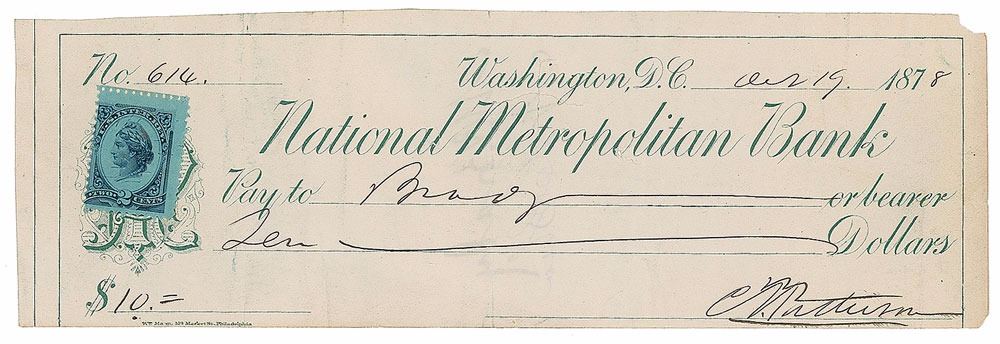 No. 614. Washington, D.C. Oct 19 1878
U.S. INTER. REV.
National Metropolitan Bank
TWO 2 CENTS
Pay to Brady or bearer
Ten Dollars
$10.=
C. Patterson
Wm Mann, Market St. Philadelphia